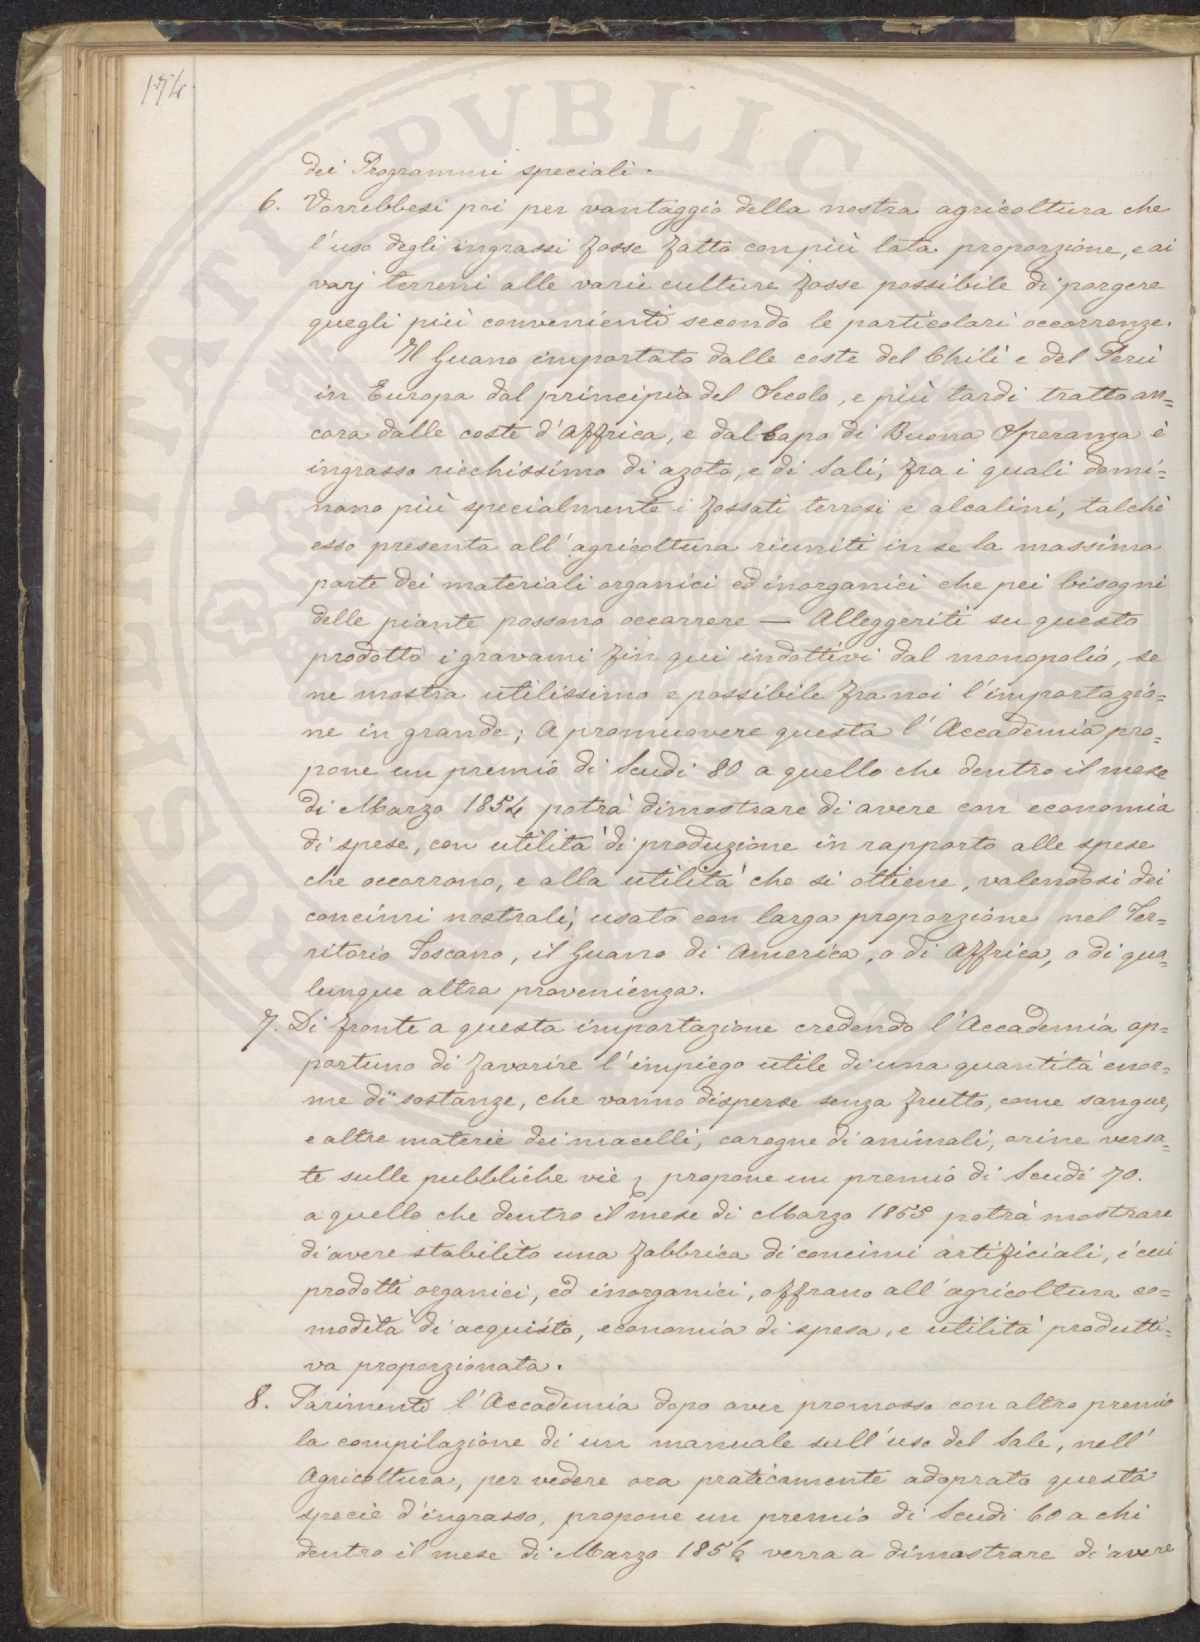 174
dei Programmi speciali.
6. Vorrebbesi poi per vantaggio della nostra agricoltura che
l'uso degli ingrassi fosse fatto con più lata proporzione, e ai
varj terreni alle varie culture fosse possibile di porgere
quegli più convenienti secondo le particolari occorrenze.
Il Guano importato dalle coste del Chilì e del Perù
in Europa dal principio del Secolo, e più tardi tratto an=
cora dalle coste d'Affrica, e dal Capo di Buona Speranza è
ingrasso ricchissimo di azoto, e di Sali, fra i quali domi=
nano più specialmente i fossati terrosi e alcalini, talchè
esso presenta all'agricoltura riuniti in se la massima
parte dei materiali organici ed inorganici che pei bisogni
delle piante possono occorrere — Alleggeriti su questo
prodotto i gravami fin qui indottivi dal monopolio, se
ne mostra utilissimo e possibile fra noi l'importazio=
ne in grande; A promuovere questa l'Accademia pro=
pone un premio di Scudi 80 a quello che dentro il mese
di Marzo 1854 potrà dimostrare di avere con economia
di spese, con utilità di produzione in rapporto alle spese
che occorrono, e alla utilità che si ottiene, valendosi dei
concimi nostrali, usato con larga proporzione nel Ter=
ritorio Toscano, il Guano di America, o di Affrica, o di qua=
lunque altra provenienza.
7. Di fronte a questa importazione credendo l'Accademia op=
portuno di favorire l'impiego utile di una quantità enor=
me di sostanze, che vanno disperse senza frutto, come sangue,
e altre materie dei macelli, carogne di animali, orine versa=
te sulle pubbliche vie, propone un premio di Scudi 70.
a quello che dentro il mese di Marzo 1855 potrà mostrare
di avere stabilito una fabbrica di concimi artificiali, i cui
prodotti organici, ed inorganici, offrano all'agricoltura co=
modità di acquisto, economia di spesa, e utilità produtti=
va proporzionata.
8. Parimente l'Accademia dopo aver promosso con altro premio
la compilazione di un manuale sull'uso del Sale, nell'
Agricoltura, per vedere ora praticamente adoprato questa
specie d'ingrasso, propone un premio di Scudi 60 a chi
dentro il mese di Marzo 1854 verra a dimostrare di avere